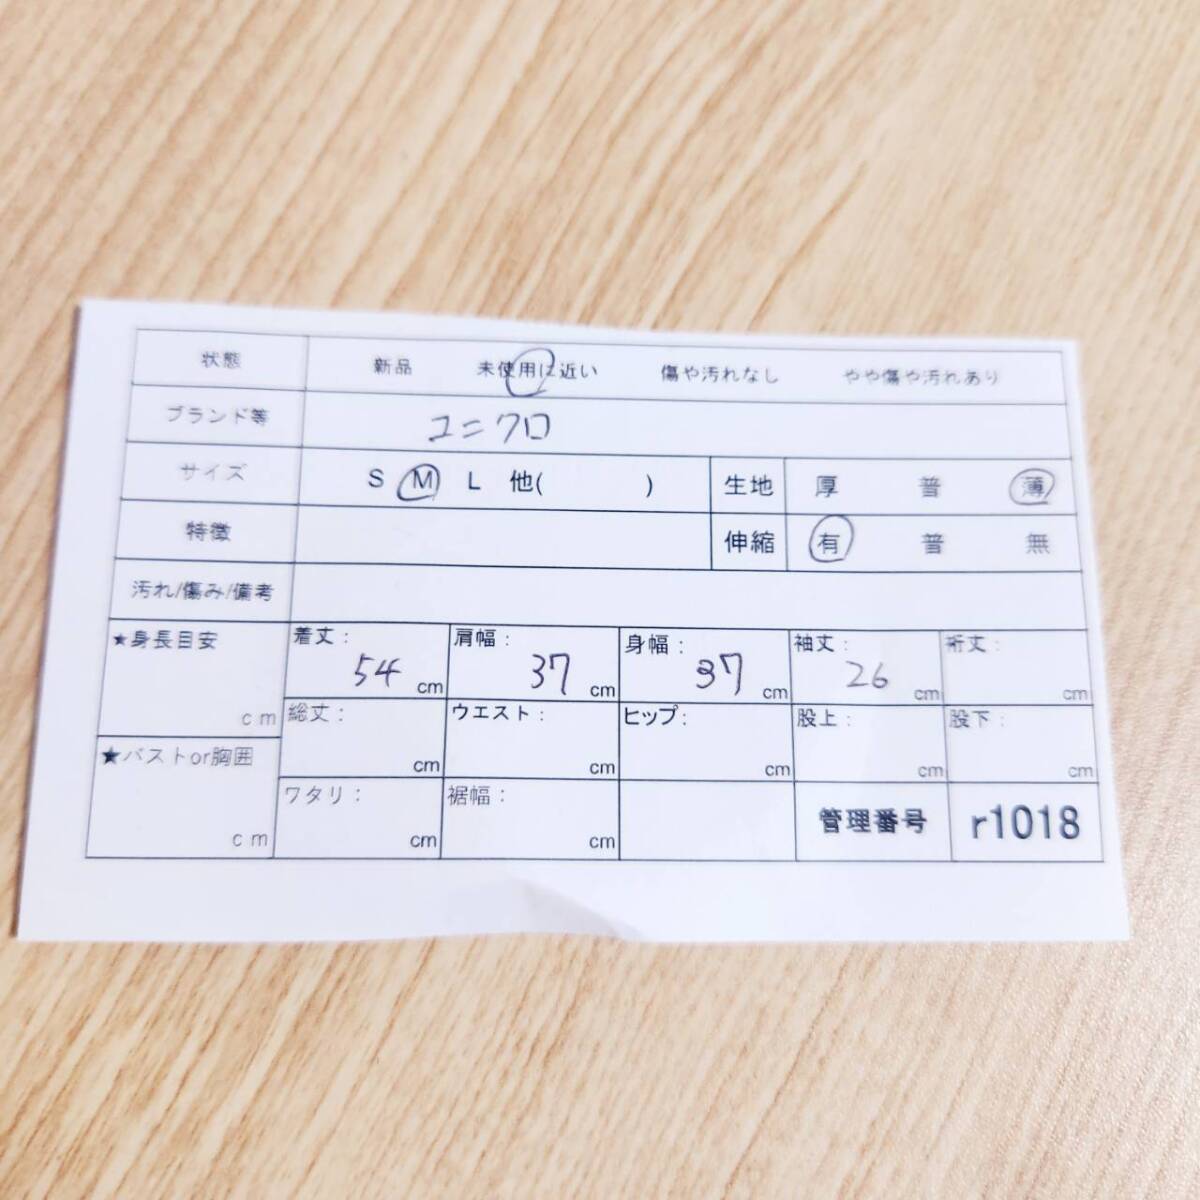 状態 新品 未使用に近い 傷や汚れなし やや傷や汚れあり
ブランド等 ユニクロ
サイズ S M L 他( ) 生地 厚 普 薄
特徴 伸縮 有 普 無
汚れ/傷み/備考
★身長目安 cm 着丈: 54 cm 肩幅: 37 cm 身幅: 37 cm 袖丈: 26 cm 裄丈: cm
総丈: cm ウエスト: cm ヒップ: cm 股上: cm 股下: cm
★バストor胸囲 cm ワタリ: cm 裾幅: cm 管理番号 r1018